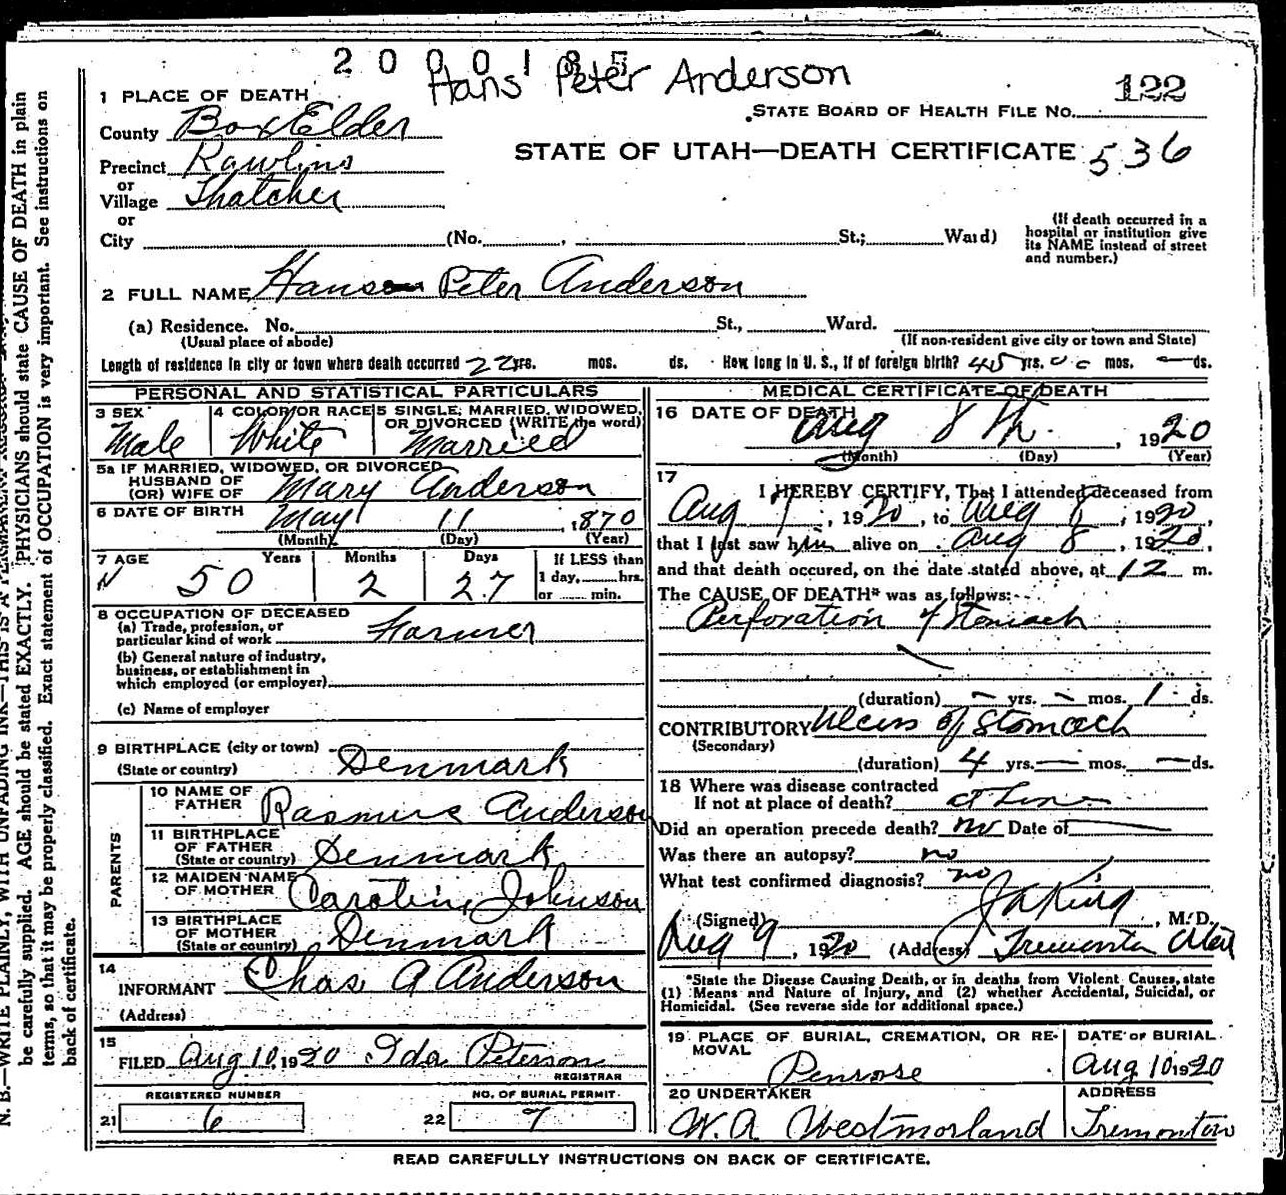 2 0 0 0 1 8 5
Hans Peter Anderson
122
1 PLACE OF DEATH
STATE BOARD OF HEALTH FILE No.
County Box Elder
STATE OF UTAH—DEATH CERTIFICATE 536
Precinct Rawlins
or
Village Thatcher
or
City (No. , St.; Ward)
(If death occurred in a hospital or institution give its NAME instead of street and number.)
2 FULL NAME Hans Peter Anderson
(a) Residence. No. St., Ward.
(Usual place of abode) (If non-resident give city or town and State)
Length of residence in city or town where death occurred 22 yrs. mos. ds. How long in U. S., if of foreign birth? 45 yrs. mos. — ds.
PERSONAL AND STATISTICAL PARTICULARS
3 SEX Male
4 COLOR OR RACE White
5 SINGLE, MARRIED, WIDOWED, OR DIVORCED (WRITE the word) Married
5a IF MARRIED, WIDOWED, OR DIVORCED
HUSBAND OF
(OR) WIFE OF Mary Anderson
6 DATE OF BIRTH May 11, 1870
(Month) (Day) (Year)
7 AGE Years Months Days If LESS than
50 2 27 1 day, hrs.
or min.
8 OCCUPATION OF DECEASED
(a) Trade, profession, or
particular kind of work Farmer
(b) General nature of industry,
business, or establishment in
which employed (or employer)
(c) Name of employer
9 BIRTHPLACE (city or town)
(State or country) Denmark
PARENTS
10 NAME OF FATHER Rasmus Anderson
11 BIRTHPLACE OF FATHER
(State or country) Denmark
12 MAIDEN NAME OF MOTHER Caroline Johnson
13 BIRTHPLACE OF MOTHER
(State or country) Denmark
14 INFORMANT Chas A Anderson
(Address)
15 FILED Aug 10, 1920 Ida Peterson
REGISTRAR
REGISTERED NUMBER
21 6
NO. OF BURIAL PERMIT
22 7
MEDICAL CERTIFICATE OF DEATH
16 DATE OF DEATH Aug 8th, 1920
(Month) (Day) (Year)
17
I HEREBY CERTIFY, That I attended deceased from
Aug 7, 1920, to Aug 8, 1920,
that I last saw him alive on Aug 8, 1920,
and that death occured, on the date stated above, at 12 m.
The CAUSE OF DEATH* was as follows:
Perforation of Stomach
(duration) — yrs. — mos. 1 ds.
CONTRIBUTORY Ulcers of Stomach
(Secondary)
(duration) 4 yrs. — mos. — ds.
18 Where was disease contracted
If not at place of death? at home
Did an operation precede death? no Date of
Was there an autopsy? no
What test confirmed diagnosis? no
(Signed) J A King, M.D.
Aug 9, 1920 (Address) Tremonton Utah
*State the Disease Causing Death, or in deaths from Violent Causes, state
(1) Means and Nature of Injury, and (2) whether Accidental, Suicidal, or
Homicidal. (See reverse side for additional space.)
19 PLACE OF BURIAL, CREMATION, OR RE-
MOVAL Penrose
DATE OF BURIAL
Aug 10 1920
20 UNDERTAKER
W. A Westmorland
ADDRESS
Tremonton
READ CAREFULLY INSTRUCTIONS ON BACK OF CERTIFICATE.
N. B.—WRITE PLAINLY, WITH UNFADING INK—THIS IS A PERMANENT
be carefully supplied. AGE should be stated EXACTLY. PHYSICIANS should state CAUSE OF DEATH in plain
terms, so that it may be properly classified. Exact statement of OCCUPATION is very important. See instructions on
back of certificate.